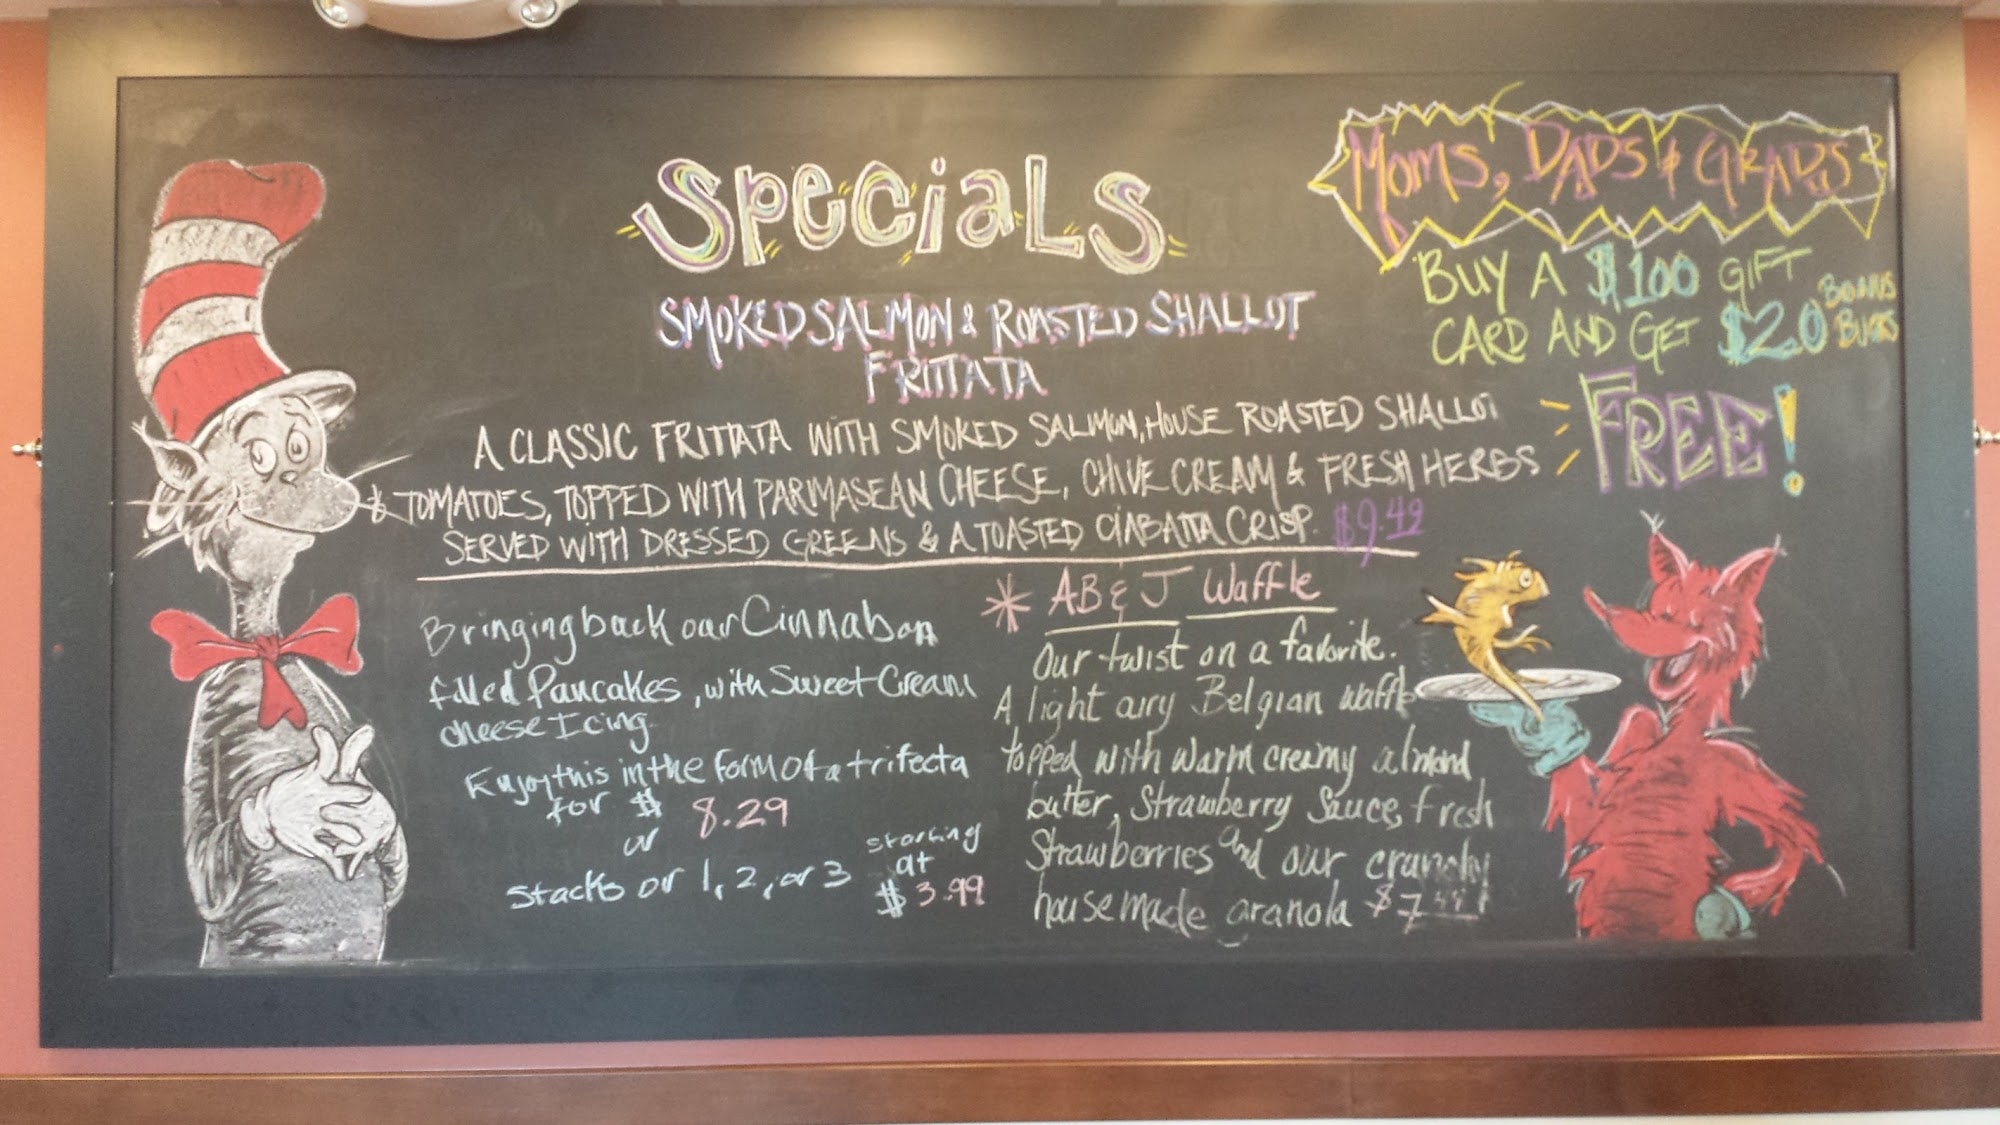 Specials
SMOKED SALMON & ROASTED SHALLOT
FRITTATA
A CLASSIC FRITTATA WITH SMOKED SALMON, HOUSE ROASTED SHALLOT
& TOMATOES, TOPPED WITH PARMASEAN CHEESE, CHIVE CREAM & FRESH HERBS
SERVED WITH DRESSED GREENS & A TOASTED CIABATTA CRISP. $9.49
MOMS, DADS & GRADS
BUY A $100 GIFT
CARD AND GET $20 BONUS
BUCKS
FREE!
Bringing back our Cinnabon
filled Pancakes, with Sweet Cream
cheese Icing
Enjoy this in the form of a trifecta
for $ 8.29
or
stacks or 1, 2, or 3 starting
at
$3.99
* AB & J Waffle
Our twist on a favorite.
A light airy Belgian waffle
topped with warm creamy almond
butter, Strawberry Sauce, fresh
Strawberries and our crunchy
house made granola $7